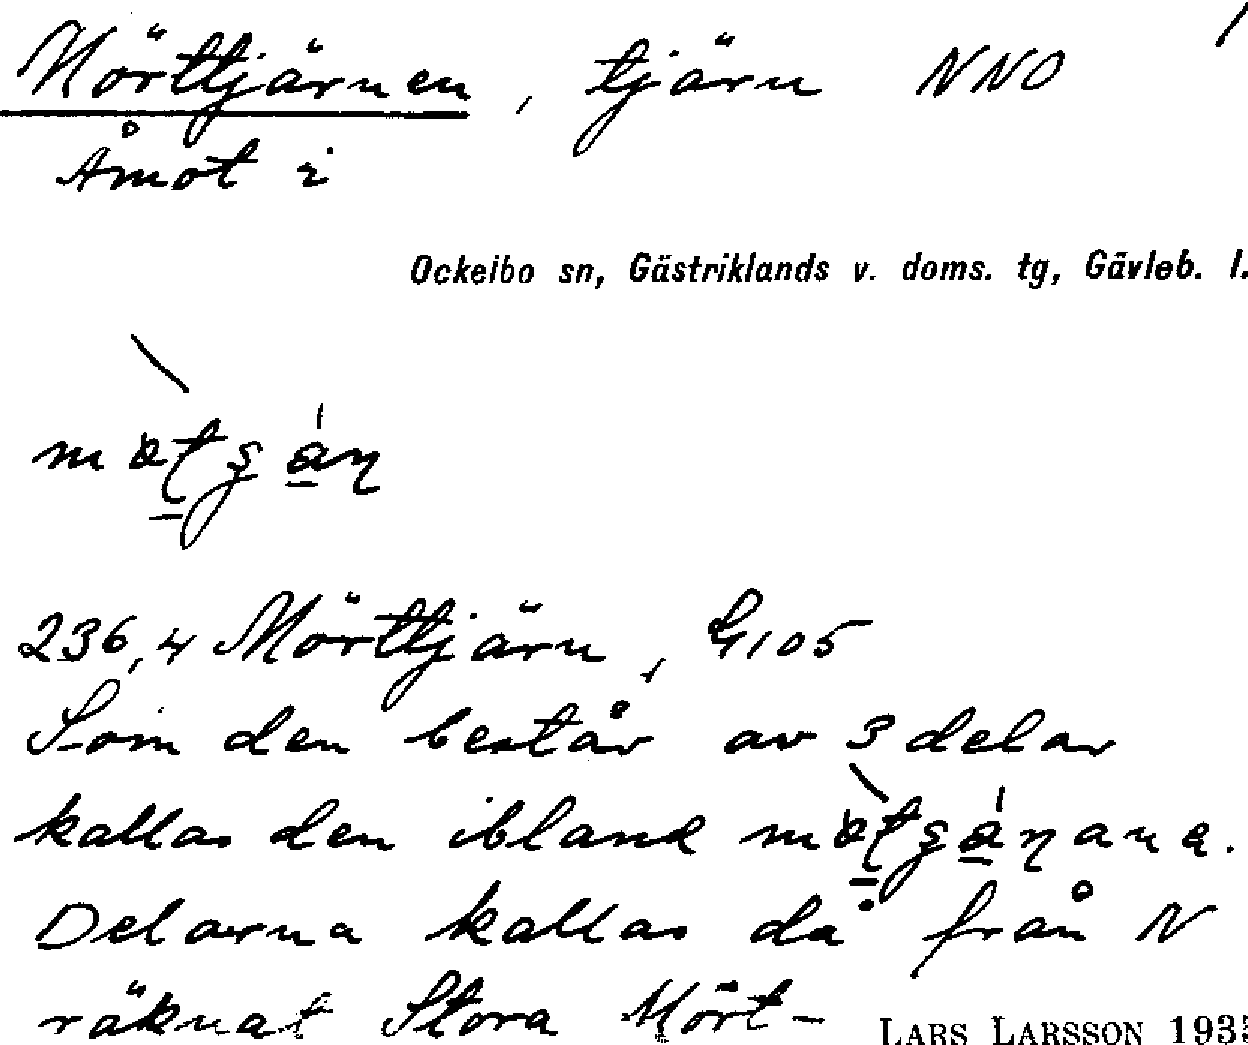 Mörttjärnen, tjärn NNO
Åmot i
Ockelbo sn, Gästriklands v. doms. tg, Gävleb. l.
236,4 Mörttjärn, G105
Som den består av 3 delar
kallas den ibland
Delarna kallas då från N
räknat Stora Mört-
LARS LARSSON 1935